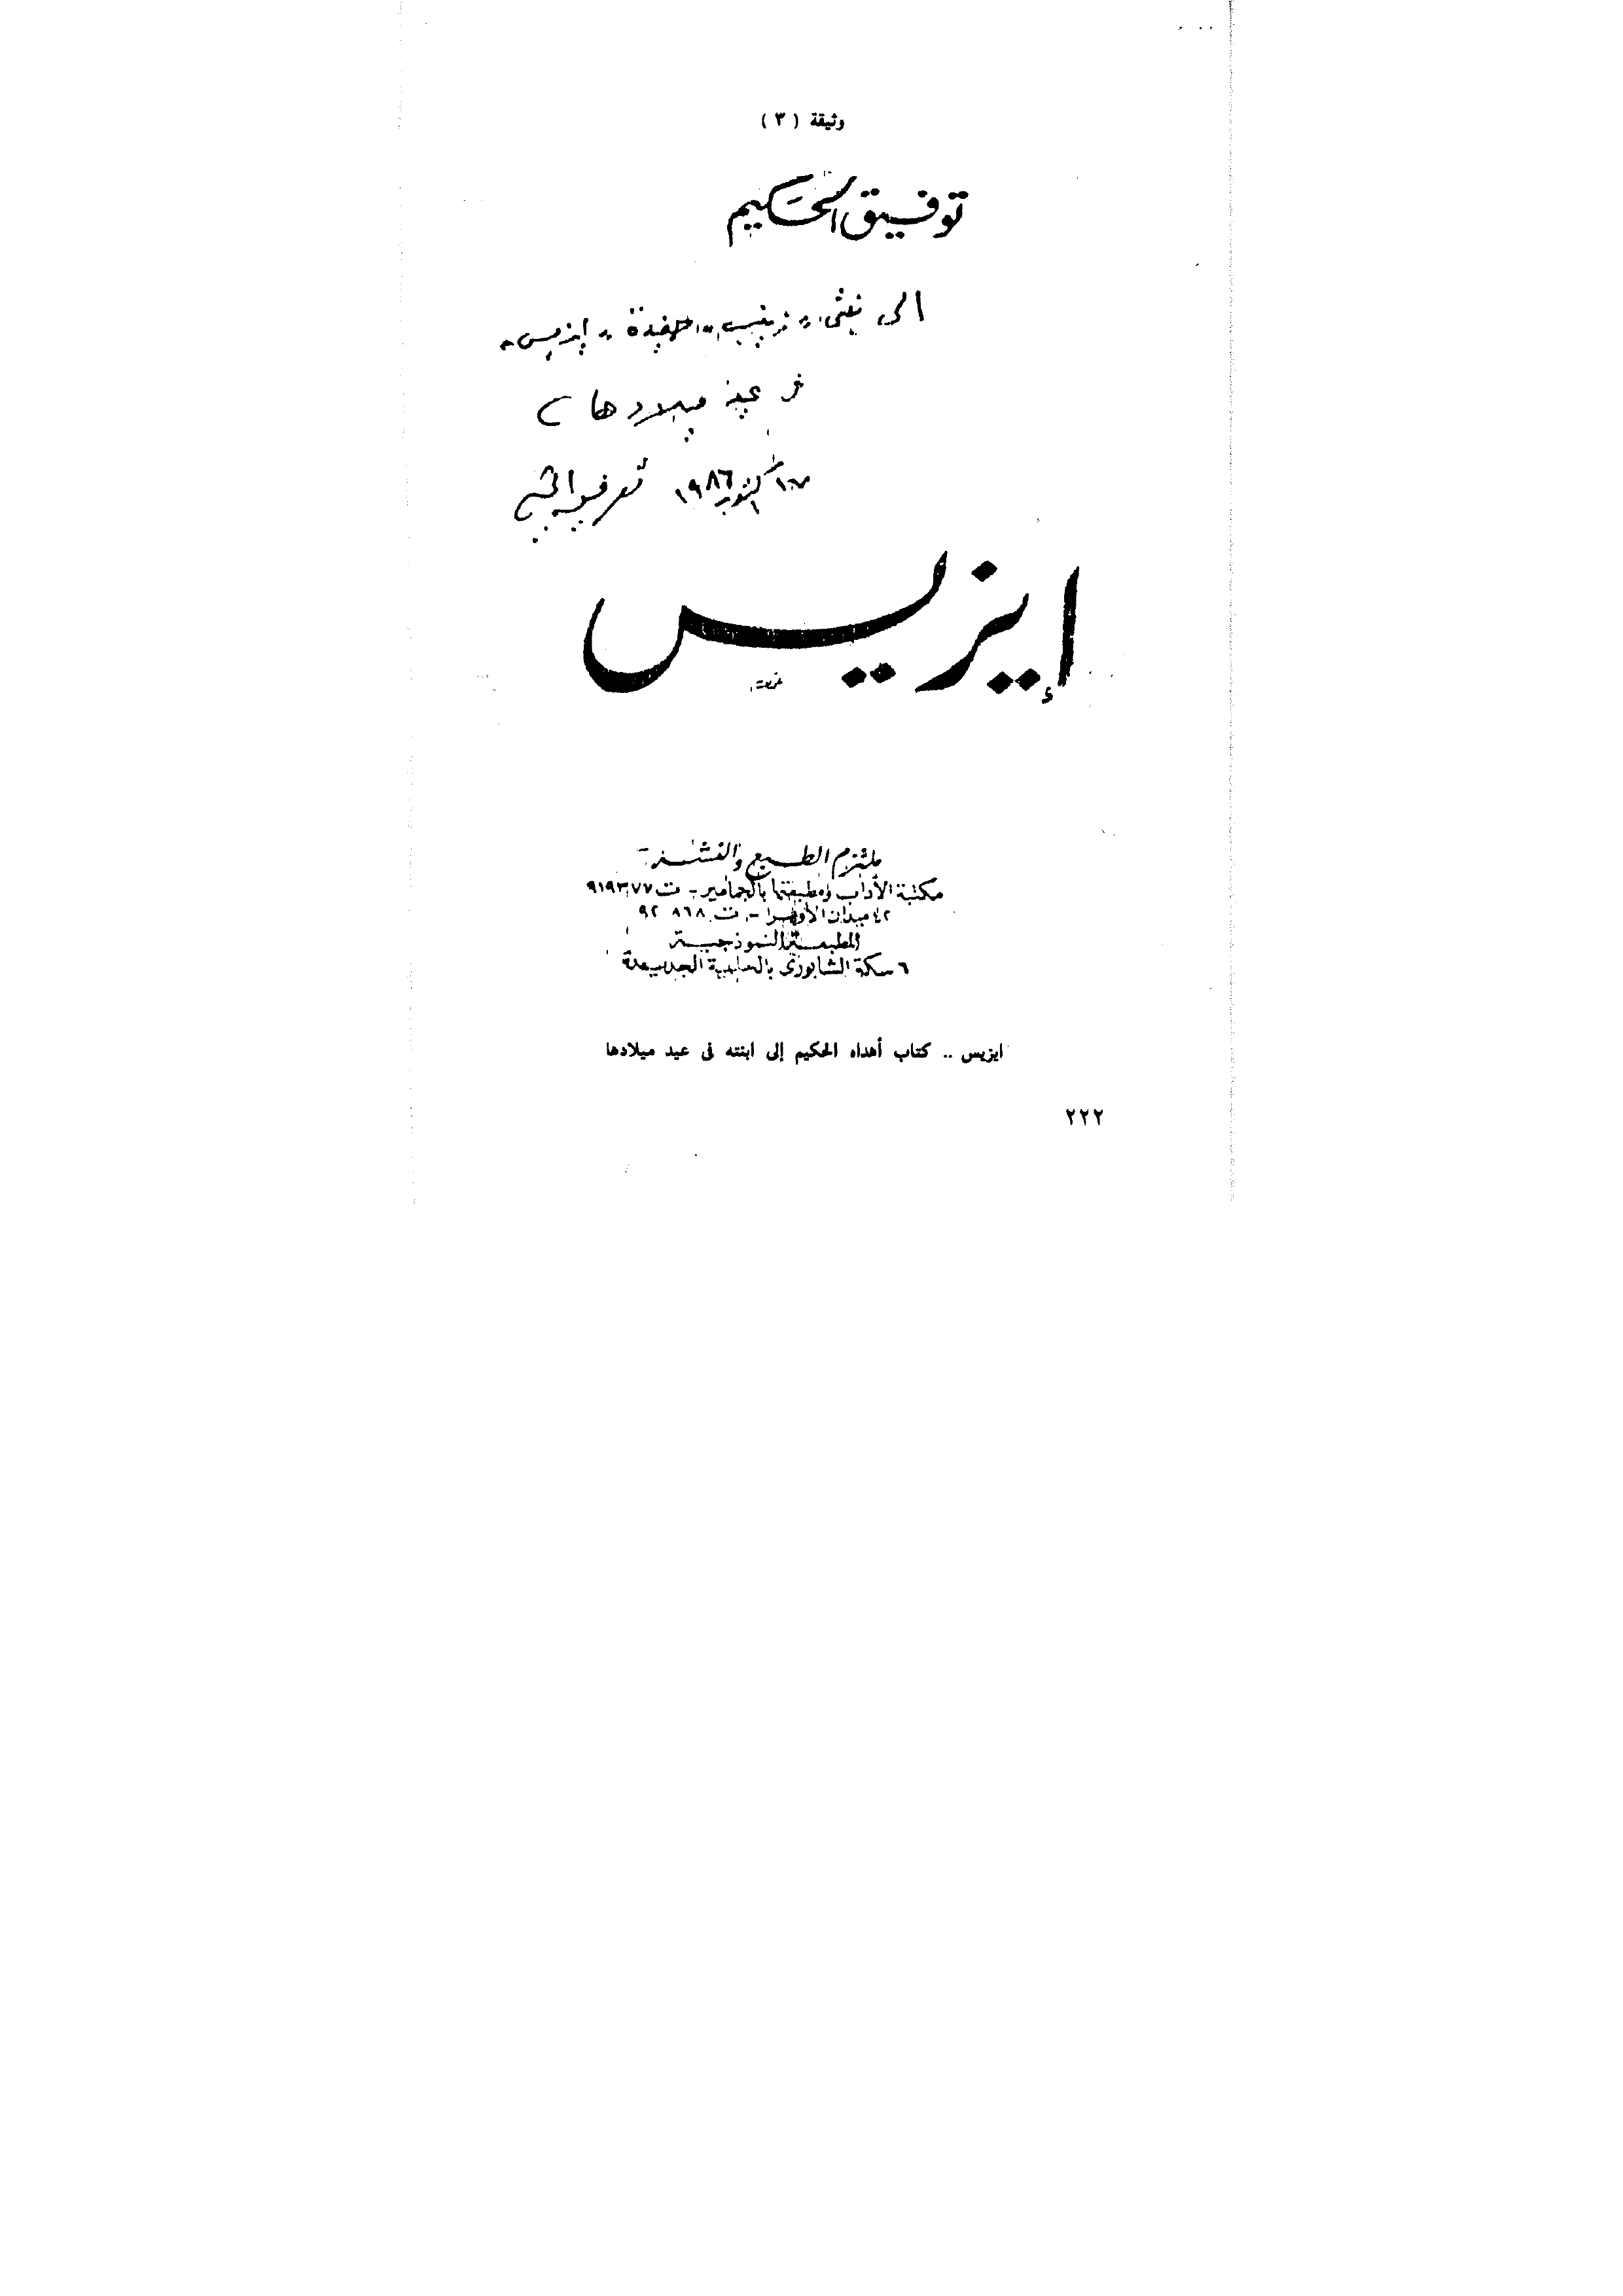 وثيقة ( ٣ )
توفيق الحكيم
الى بنتى « زينب » حفيدة « ايزيس »
فى عيد ميلادها
أكتوبر ١٩٨٦ توفيق الحكيم
إيزيس
ملتزم الطبع والنشر
مكتبة الآداب ومطبعتها بالجماميز - ت ٩١٩٣٧٧
٤٢ ميدان الأوبرا - ت ٩٢٠٨٦٨
المطبعة النموذجية
٦ سكة الشابورى بالحلمية الجديدة
ايزيس .. كتاب أهداه الحكيم إلى ابنته فى عيد ميلادها
٢٢٢